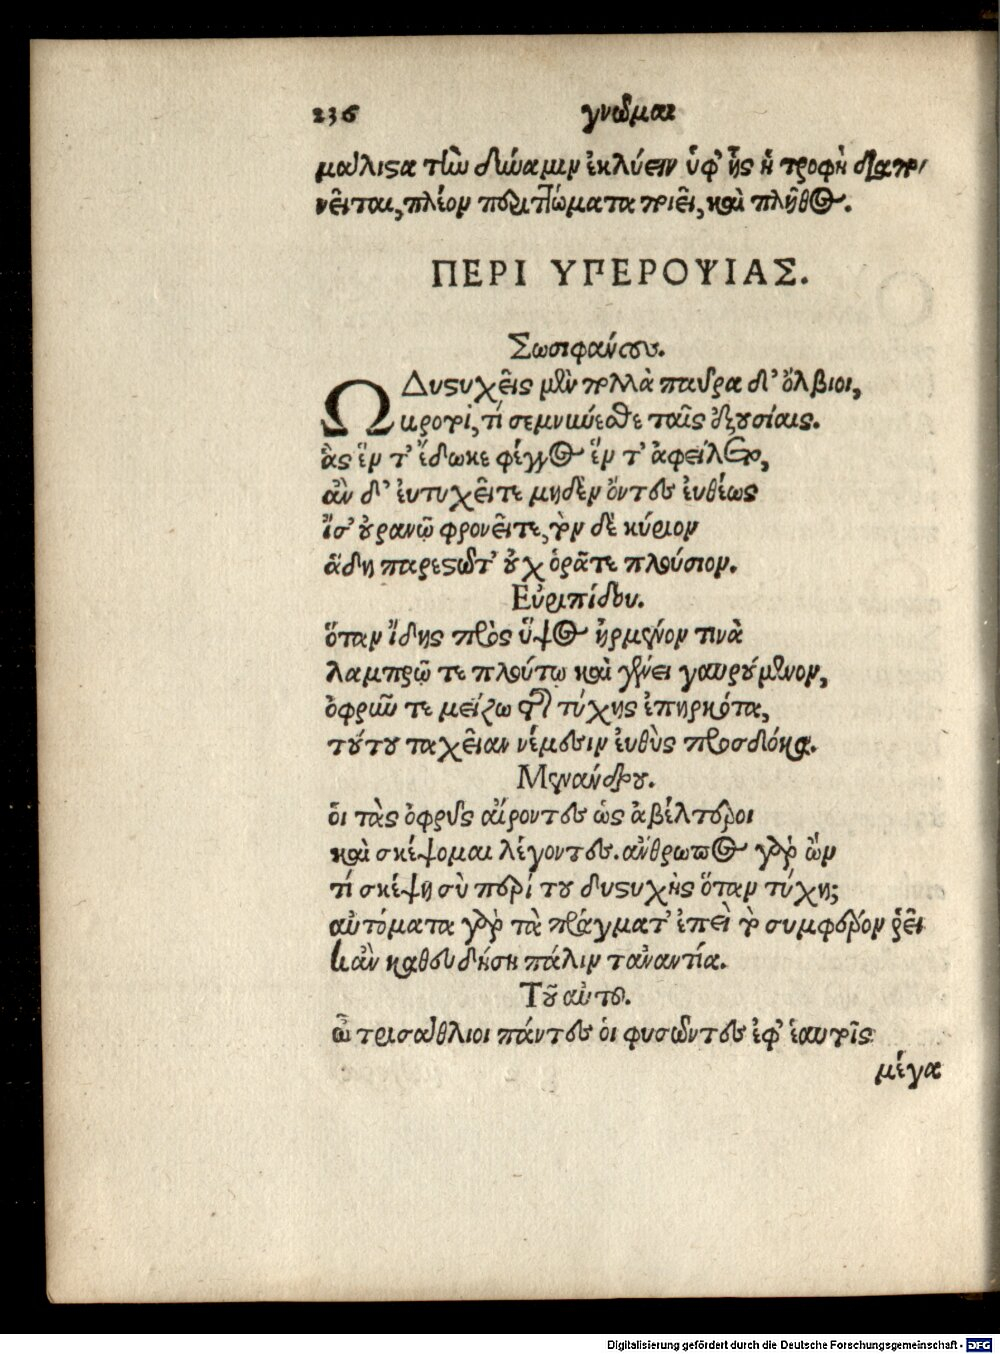 236 γνῶμαι
μάλιϛα τὴν δύναμιν ἐκλύειν ὑφ' ἧς ἡ τροφὴ διαπο-
νεῖται, πλέον περιτλώματα ποιεῖ, καὶ πλῆθος.
ΠΕΡΙ ΥΠΕΡΟΨΙΑΣ.
Σωσιφάνους.
Ω Δυϛυχεῖς μὲν πολλὰ παῦρα δ' ὄλβιοι,
κροτοὶ, τί σεμνύνεσθε ταῖς ἐξουσίαις.
ἃς ἕν τ' ἔδωκε φέγγος ἕν τ' ἀφείλετο,
ἂν δ' ἐυτυχεῖτε μηδὲν ὄντες ἐυθέως
ἴσ' οὐρανῷ φρονεῖτε, τὸν δὲ κύριον
ἅδη παρεϛῶτ' οὐχ ὁρᾶτε πλούσιον.
Εὐριπίδου.
ὅταν ἴδῃς πρὸς ὕψος ἠρμένον τινὰ
λαμπρῷ τε πλούτῳ καὶ γένει γαυρούμενον,
ὀφρῦν τε μείζω τῆς τύχης ἐπηρκότα,
τούτου ταχεῖαν νέμεσιν ἐυθὺς προσδόκα.
Μενάνδρου.
ὁι τὰς ὀφρῦς αἴροντες ὡς ἀβέλτεροι
καὶ σκέψομαι λέγοντες. ἄνθρωπος γὰρ ὢν
τί σκέψῃ σὺ περί του δυϛυχὴς ὅταν τύχῃ;
αὐτόματα γὰρ τὰ πράγματ' ἐπεὶ τὸ συμφέρον ῥεῖ
κἂν καθεύδῃση πάλιν τἀναντία.
Τοῦ αὐτοῦ.
ὦ τρισάθλιοι πάντες ὁι φυσῶντες ἐφ' ἑαυτοῖς
μέγα
Digitalisierung gefördert durch die Deutsche Forschungsgemeinschaft - DFG